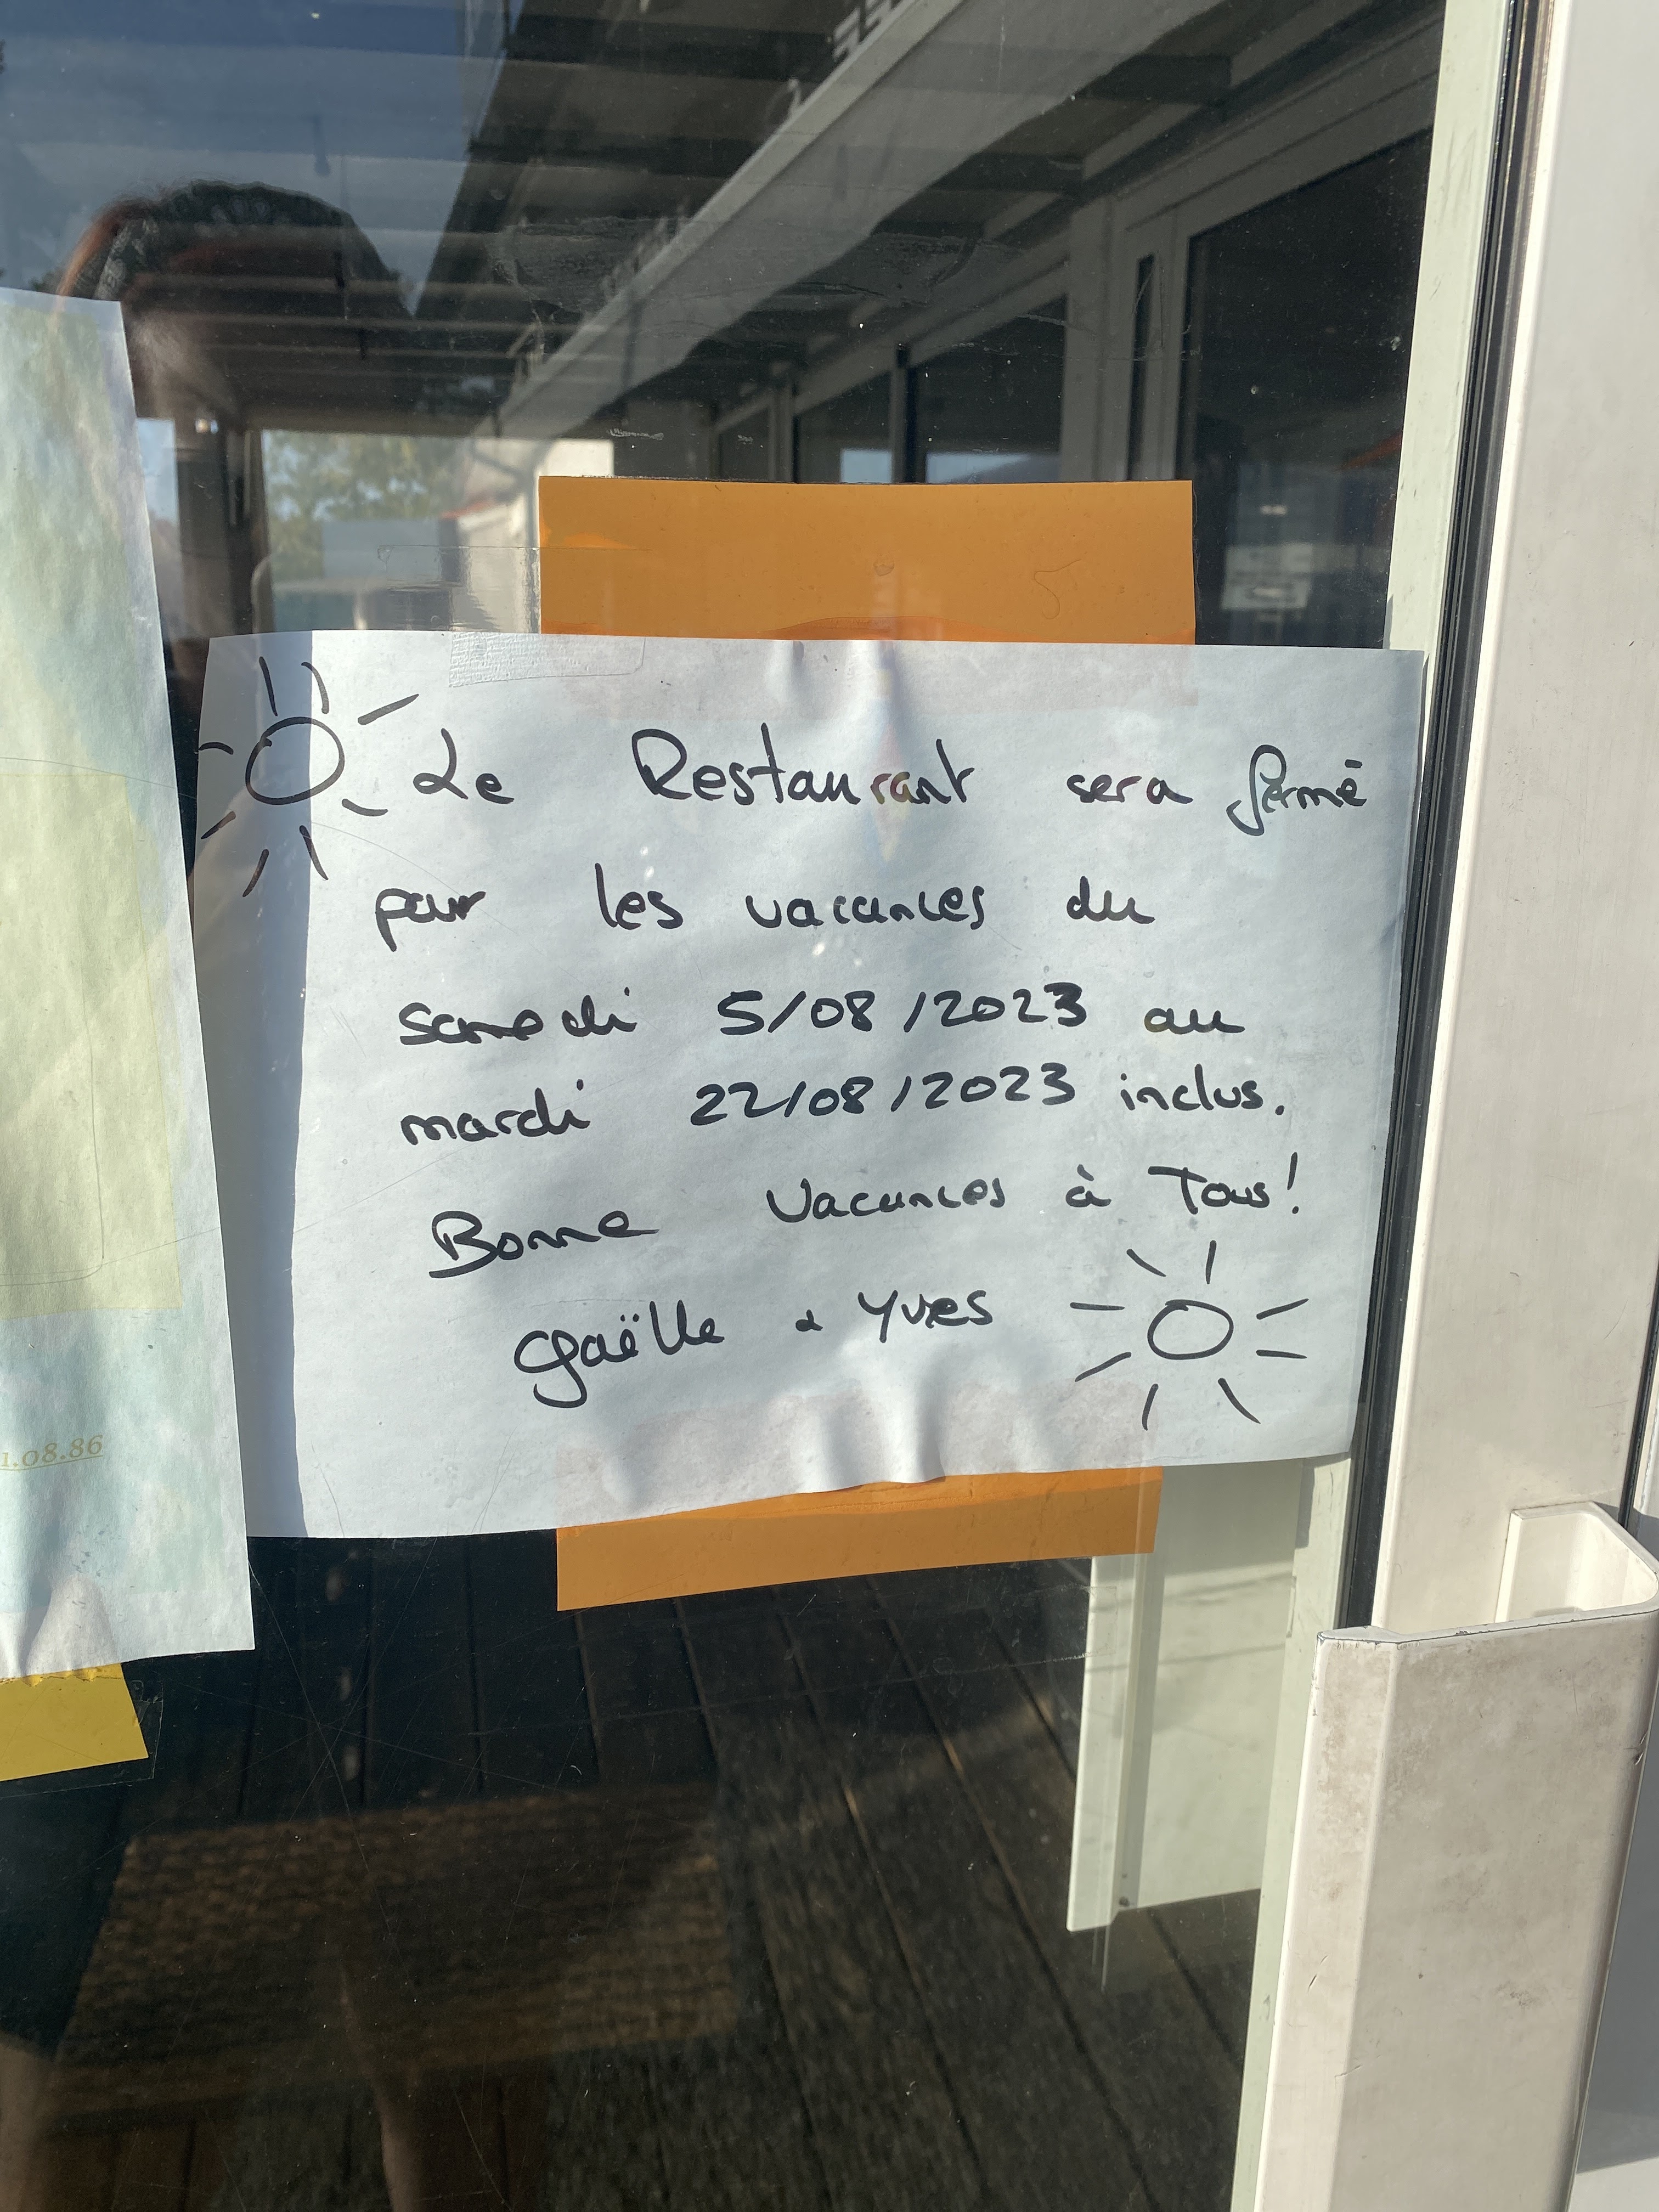 Le Restaurant sera fermé
pour les vacances du
samedi 5/08/2023 au
mardi 22/08/2023 inclus.
Bonne Vacances à Tous!
Gaëlle & Yves
1.08.86